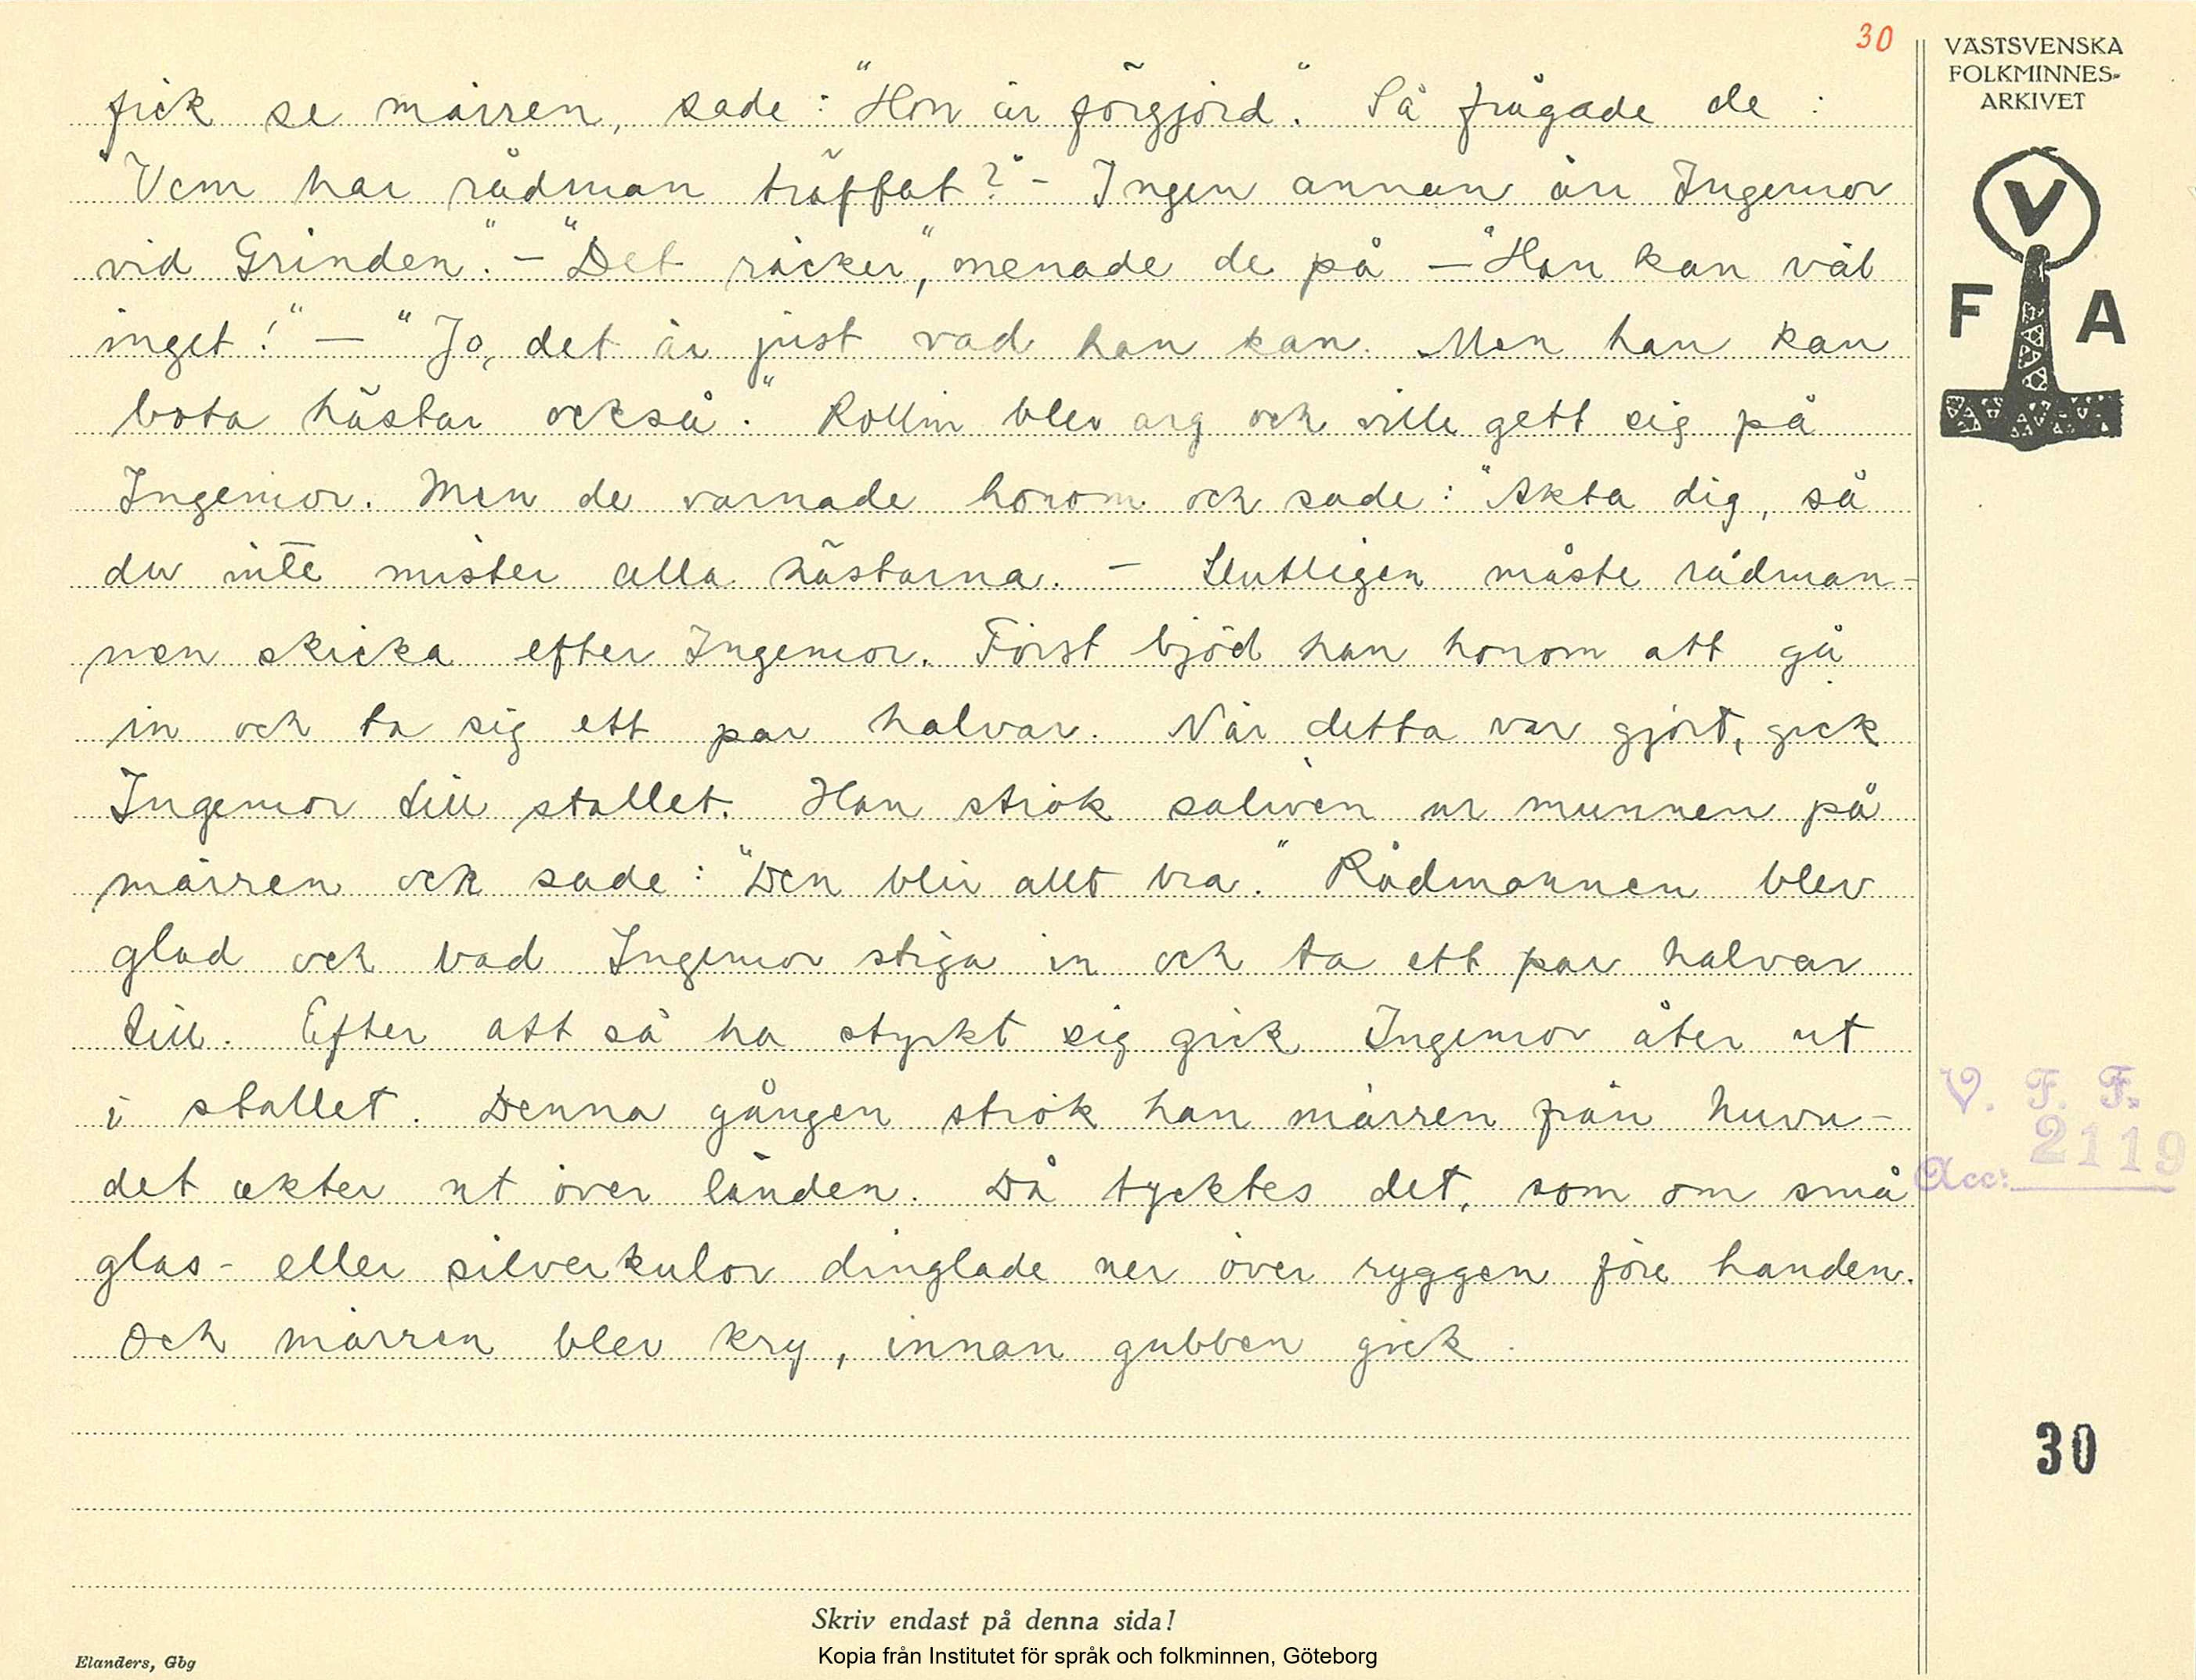 30
VÄSTSVENSKA
FOLKMINNES-
ARKIVET
V
F A
fick se märren, sade: "Hon är förgjord." Så frågade de:
"Vem har rådman träffat?" - Ingen annan än Ingemor
vid Grinden." - "Det räcker", menade de på - "Han kan väl
inget!" - "Jo, det är just vad han kan. Men han kan
bota hästar också." Rollin blev arg och ville gett sig på
Ingemor. Men de varnade honom och sade: "Akta dig, så
du inte mister alla hästarna. - Slutligen måste rådman-
nen skicka efter Ingemor. Först bjöd han honom att gå
in och ta sig ett par halvar. När detta var gjort, gick
Ingemor till stallet. Han strök saliven ur munnen på
märren och sade: "Den blir allt bra." Rådmannen blev
glad och bad Ingemor stiga in och ta ett par halvar
till. Efter att så ha styrkt sig gick Ingemor åter ut
i stallet. Denna gången strök han märren från huvu-
det akter ut över länden. Då tycktes det, som om små
glas- eller silverkulor dinglade ner över ryggen före handen.
Och märren blev kry, innan gubben gick.
V. F. F.
2119
Acc:
30
Skriv endast på denna sida!
Kopia från Institutet för språk och folkminnen, Göteborg
Elanders, Gbg